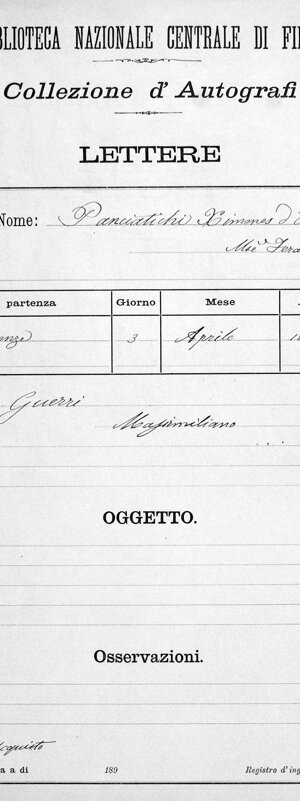 BLIOTECA NAZIONALE CENTRALE DI FI
Collezione d' Autografi
LETTERE
Nome: Panciatichi Ximenes d'
partenza Giorno Mese
3 Aprile
Guerri
Massimiliano
OGGETTO.
Osservazioni.
a a di 189 Registro d'ing